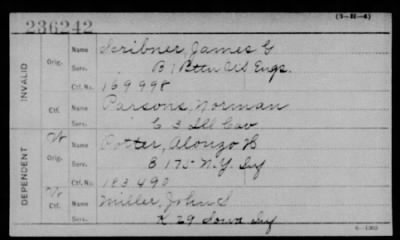 (3-2-4)
236242
INVALID
Orig.
Name Scribner, James G
Serv. B 1 Battn US Engs.
Ctf. No. 169998
Ctf.
Name Parsons, Norman
Serv. C 3 Ill Cav
DEPENDENT
W
Orig.
Name Potter, Alonzo B
Serv. B 175 N.Y. Inf
Ctf. No. 183490
W
Ctf.
Name Miller, John S
Serv. K 29 Iowa Inf